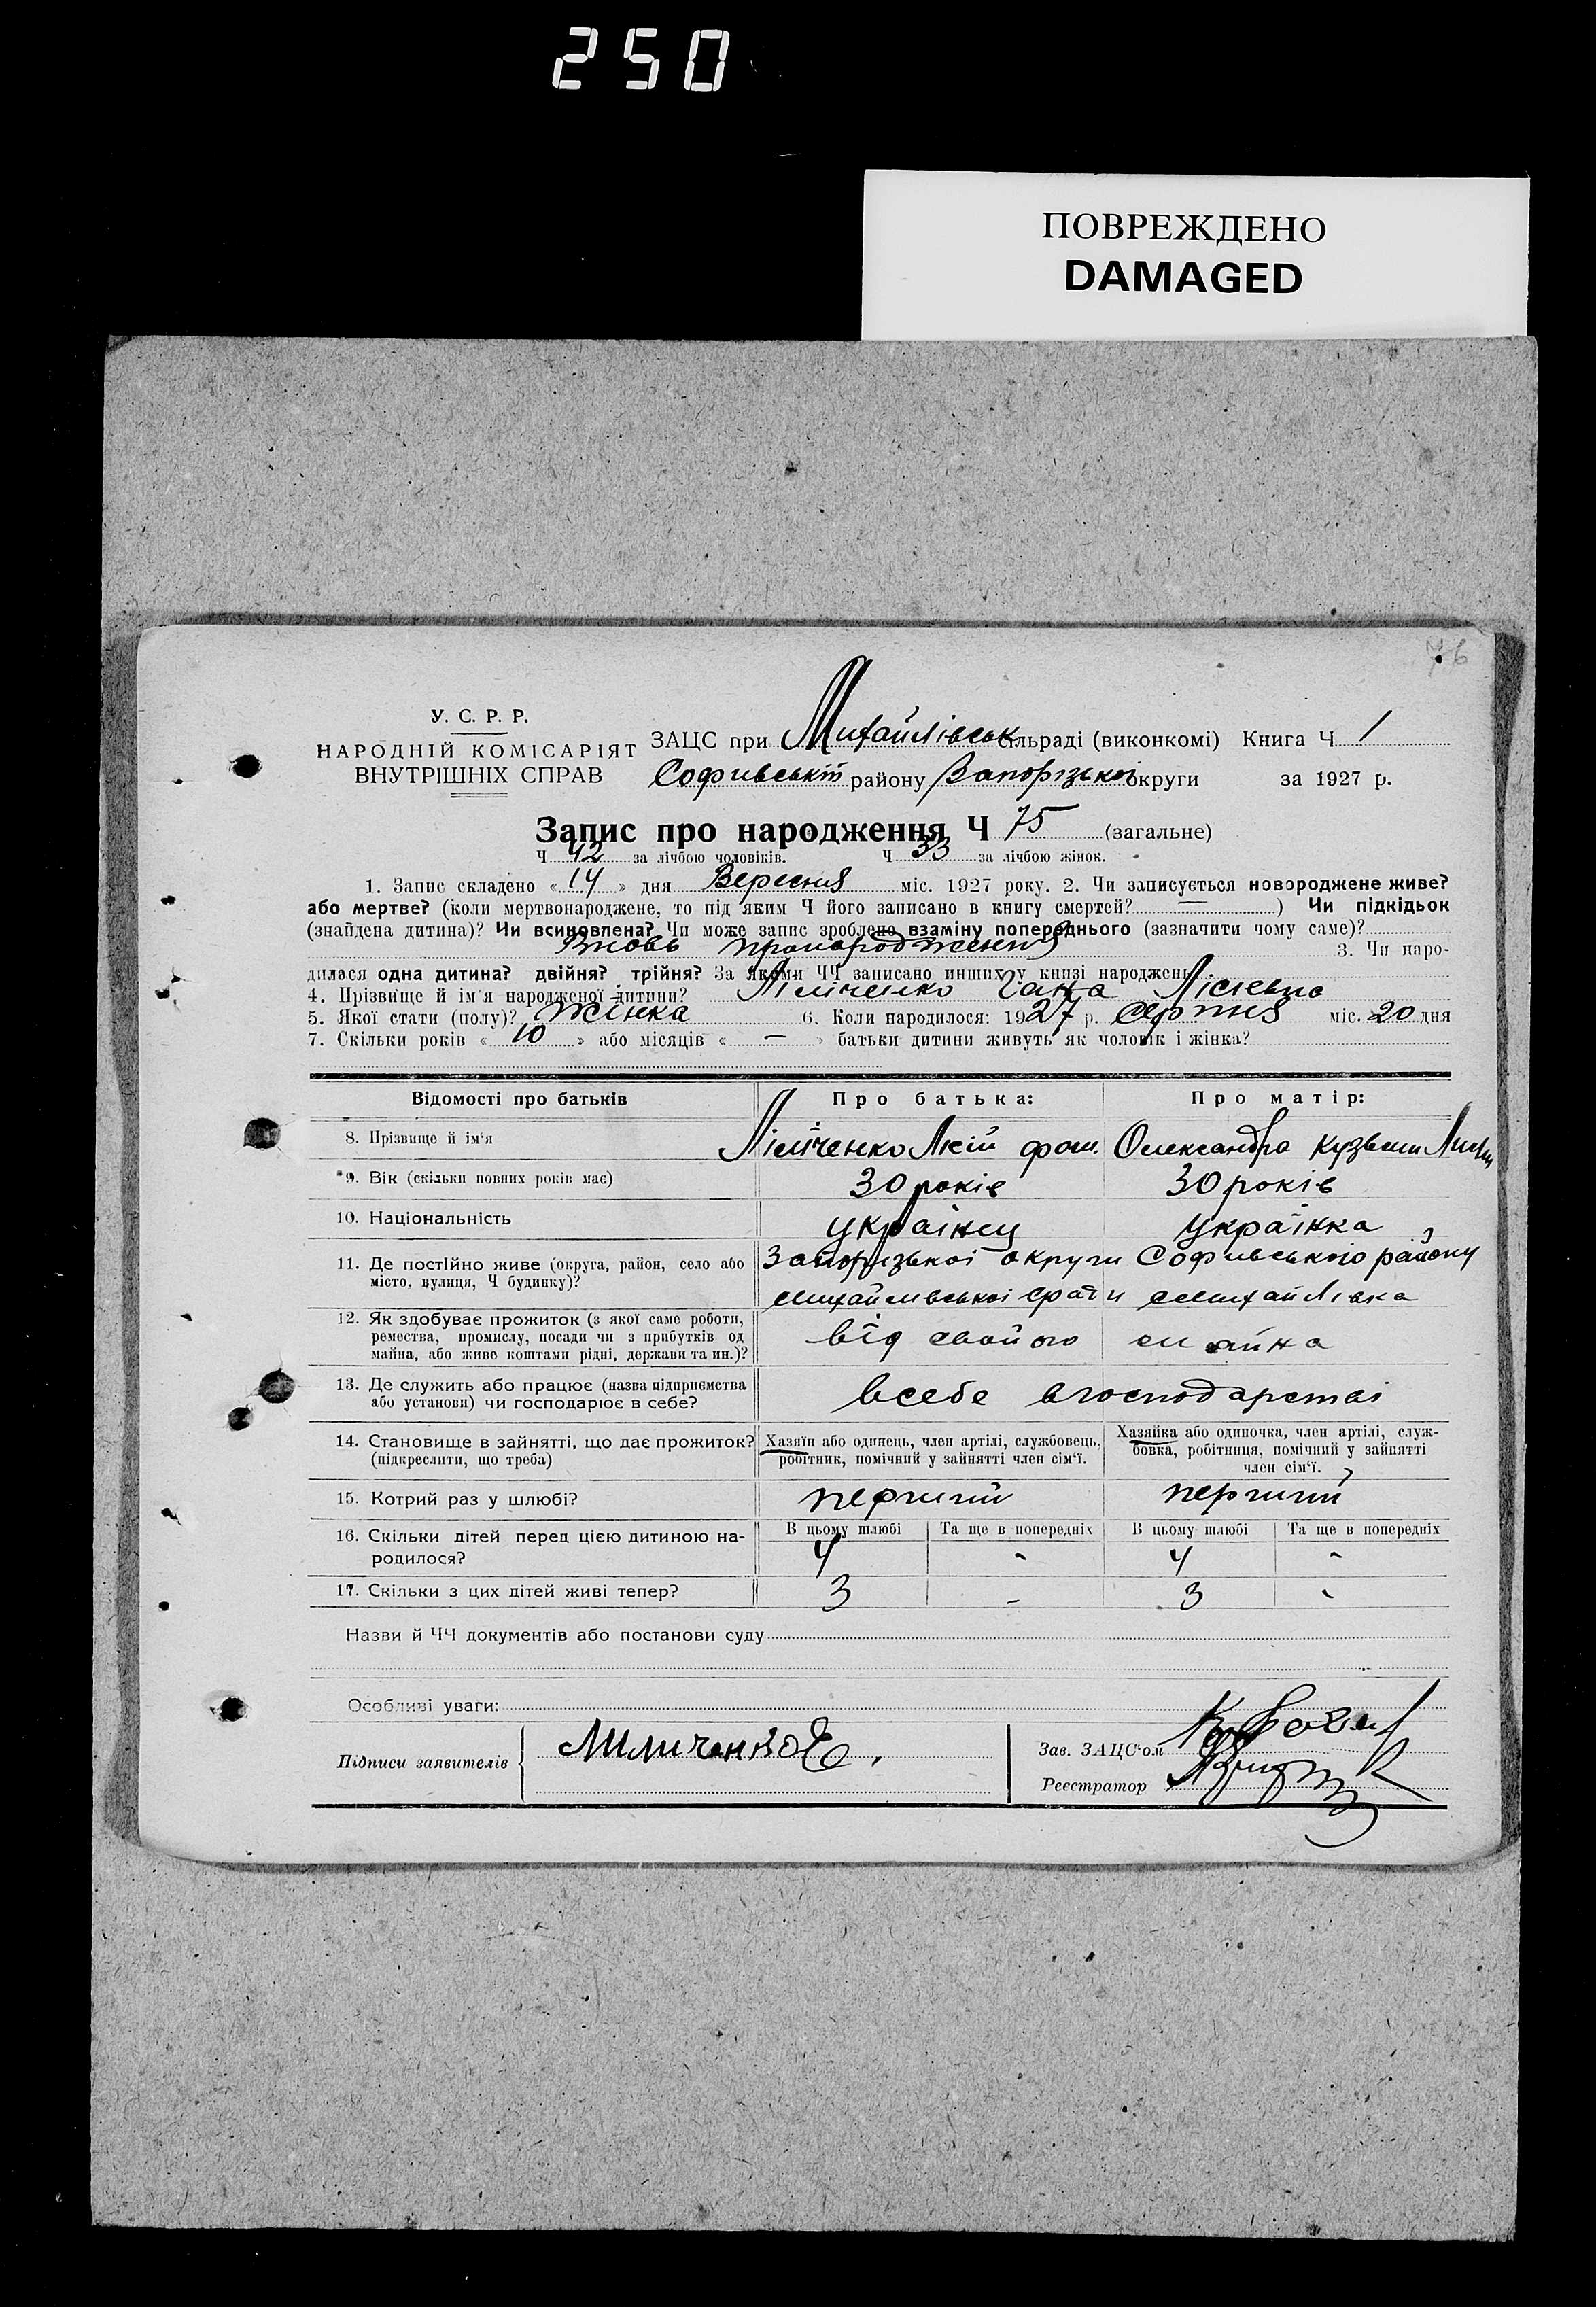 250
ПОВРЕЖДЕНО
DAMAGED
76
У. С. Р. Р.
НАРОДНІЙ КОМІСАРІЯТ
ВНУТРІШНІХ СПРАВ
ЗАЦС при Михайлівськ сільраді (виконкомі) Книга Ч 1
району Запорізької округи за 1927 р.
Запис про народження Ч 75 (загальне)
Ч 42 за лічбою чоловіків. Ч 33 за лічбою жінок.
1. Запис складено « 14 » дня Вересня міс. 1927 року. 2. Чи записується новороджене живе?
або мертве? (коли мертвонароджене, то під яким Ч його записано в книгу смертей? — ) Чи підкідьок
(знайдена дитина)? Чи всиновлена? Чи може запис зроблено взаміну попереднього (зазначити чому саме)?
Вновь 3. Чи наро-
дилася одна дитина? двійня? трійня? За якими ЧЧ записано инших у книзі народжень
4. Прізвище й ім'я народженої дитини? Ганна
5. Якої стати (полу)? Жінка 6. Коли народилося: 1927 р. серпня міс. 20 дня
7. Скільки років « 10 » або місяців « — » батьки дитини живуть як чоловік і жінка?
Відомості про батьків Про батька: Про матір:
8. Прізвище й ім‘я Олександра
*9. Вік (скільки повних років має) 30 років 30 років
10. Національність українец українка
11. Де постійно живе (округа, район, село або
місто, вулиця, Ч будинку)?
Запоризької округи Софиевського району
Михайливської сради с Михайлівка
12. Як здобуває прожиток (з якої саме роботи,
ремества, промислу, посади чи з прибутків од
майна, або живе коштами рідні, держави та ин.)?
від свойого майна
13. Де служить або працює (назва підприємства
або установи) чи господарює в себе?
всебе вгосподарстві
14. Становище в зайнятті, що дає прожиток?
(підкреслити, що треба)
Хазяїн або одинець, член артілі, службовець,
робітник, помічний у зайнятті член сім‘ї.
Хазяйка або одиночка, член артілі, служ-
бовка, робітниця, помічний у зайнятті
член сім‘ї.
15. Котрий раз у шлюбі? перший перший
16. Скільки дітей перед цією дитиною на-
родилося?
В цьому шлюбі Та ще в попередніх В цьому шлюбі Та ще в попередніх
4 - 4 -
17. Скільки з цих дітей живі тепер? 3 - 3 -
Назви й ЧЧ документів або постанови суду
Особливі уваги:
Підписи заявителів
Зав. ЗАЦС‘ом
Реєстратор